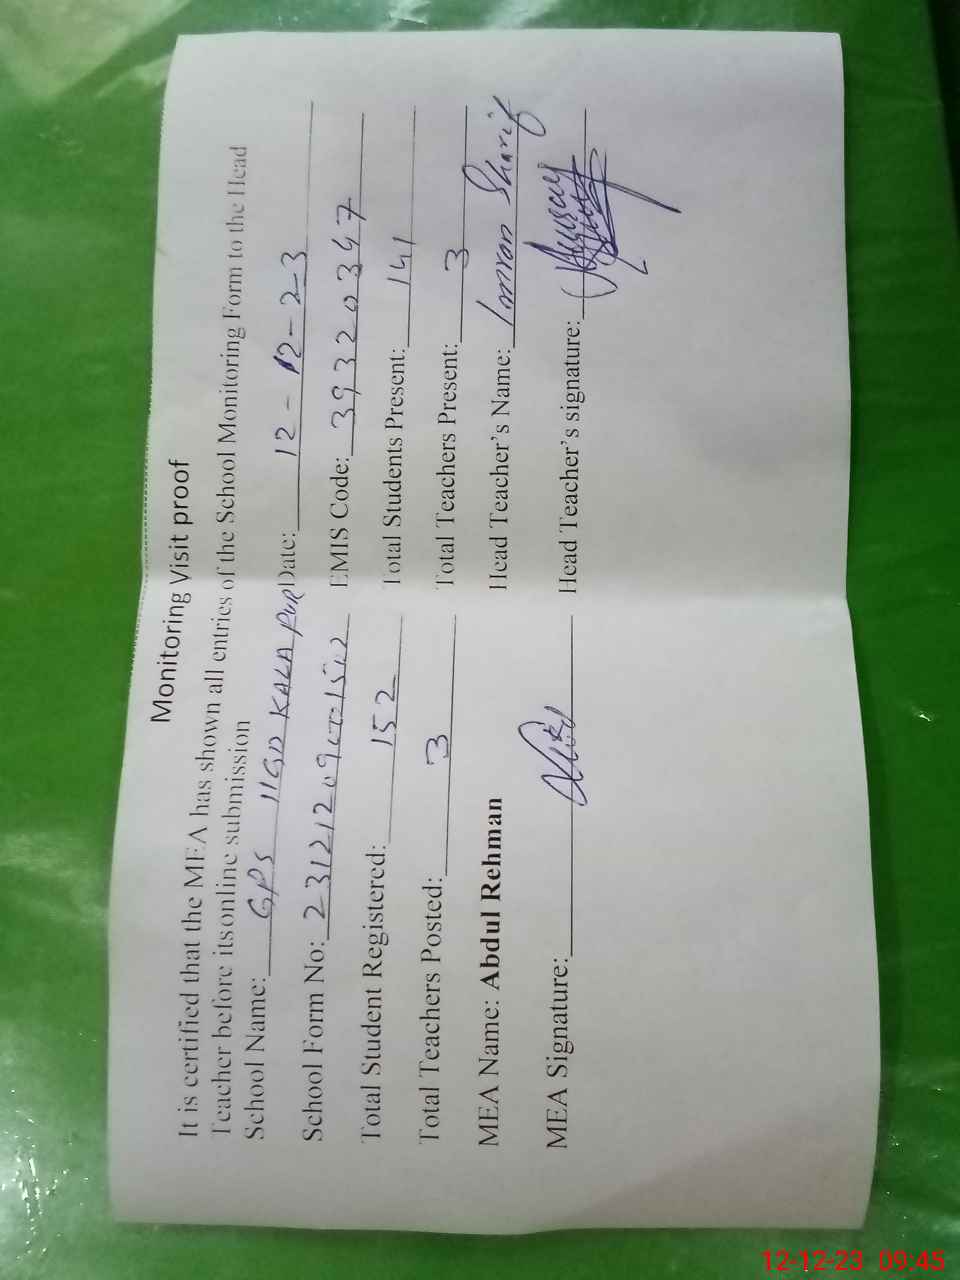 Monitoring Visit proof
It is certified that the MEA has shown all entries of the School Monitoring Form to the Head
Teacher before itsonline submission
School Name: GPS 11GD KALA PUR Date: 12-12-23
School Form No: EMIS Code: 39320347
Total Student Registered: 152 Total Students Present: 141
Total Teachers Posted: 3 Total Teachers Present: 3
MEA Name: Abdul Rehman Head Teacher's Name: Imran Sharif
MEA Signature: Head Teacher's signature:
12-12-23 09:45